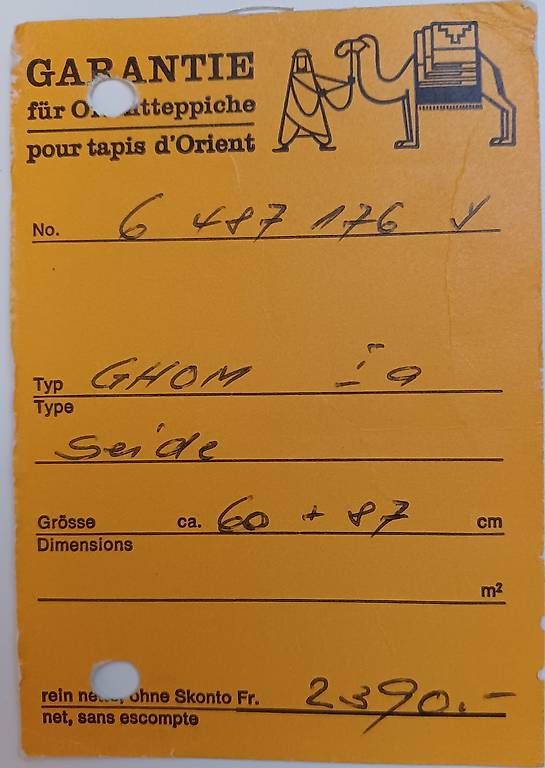 GARANTIE
für Orientteppiche
pour tapis d'Orient
No. 6 487 176 y
Typ GHOM Ia
Type
Seide
Grösse ca. 60 + 87 cm
Dimensions
m²
rein netto, ohne Skonto Fr. 2390.-
net, sans escompte